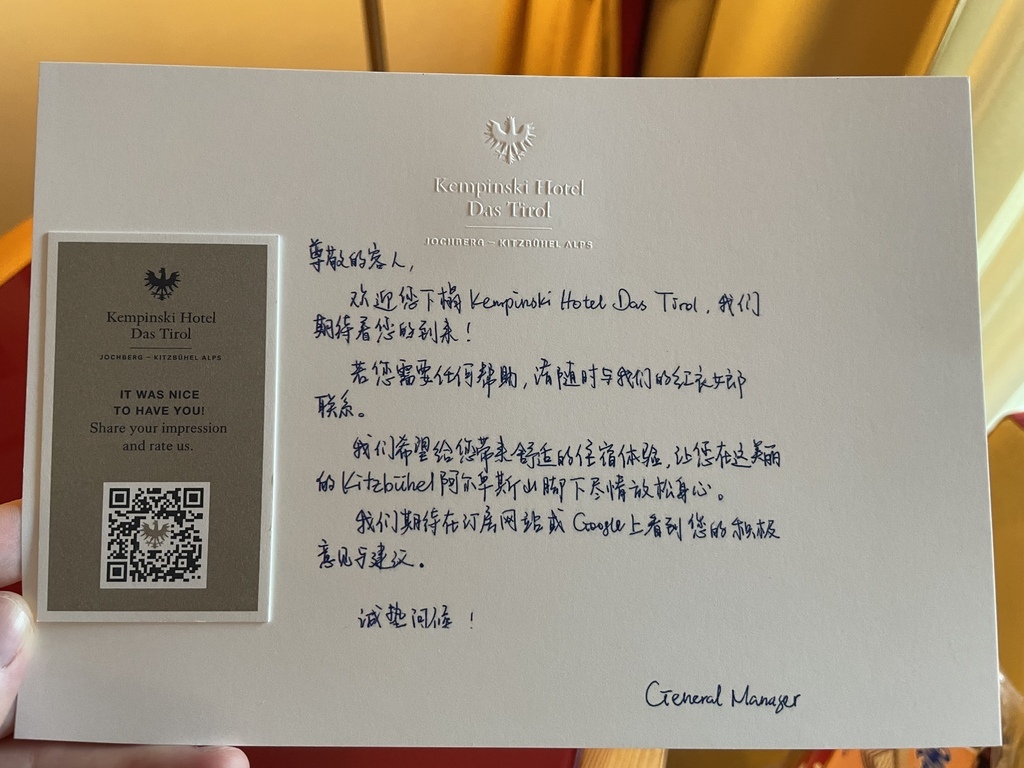 Kempinski Hotel
Das Tirol
JOCHBERG – KITZBÜHEL ALPS
尊敬的客人,
欢迎您下榻 Kempinski Hotel Das Tirol, 我们
期待着您的到来!
若您需要任何帮助, 请随时与我们的红衣女郎
联系。
我们希望给您带来舒适的住宿体验, 让您在这美丽
的 Kitzbühel 阿尔卑斯山脚下尽情放松身心。
我们期待在订房网站或 Google 上看到您的积极
意见与建议。
诚挚问候!
General Manager
Kempinski Hotel
Das Tirol
JOCHBERG – KITZBÜHEL ALPS
IT WAS NICE
TO HAVE YOU!
Share your impression
and rate us.